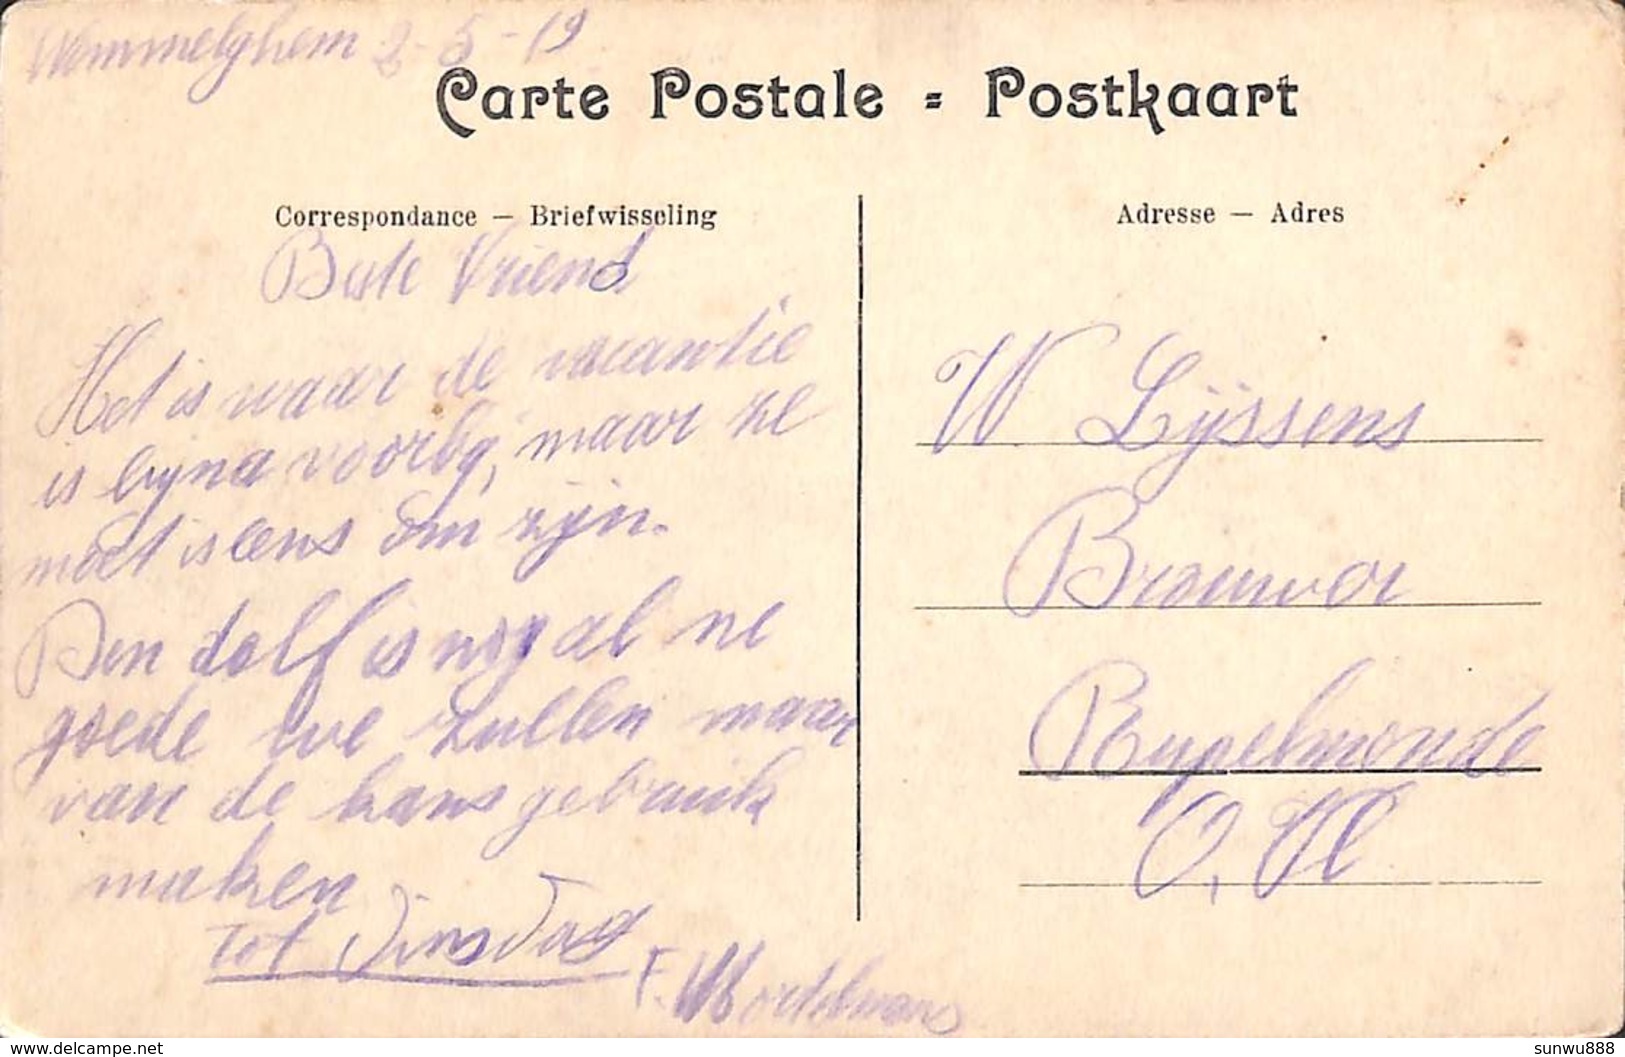 Wemmelghem 2-5-19
Carte Postale = Postkaart
Correspondance — Briefwisseling
Beste Vriend
Het is waar de vacantie
is byna voorby, maar ze
moet is eens om zijn.
Den dolf is nog al ne
goede we zullen maar
van de kans gebruik
maken
tot Dinsdag
F. Mortelmans
Adresse — Adres
W Lijssens
Brouwer
Rupelmonde
O, Vl
delcampe.net
sunwu888